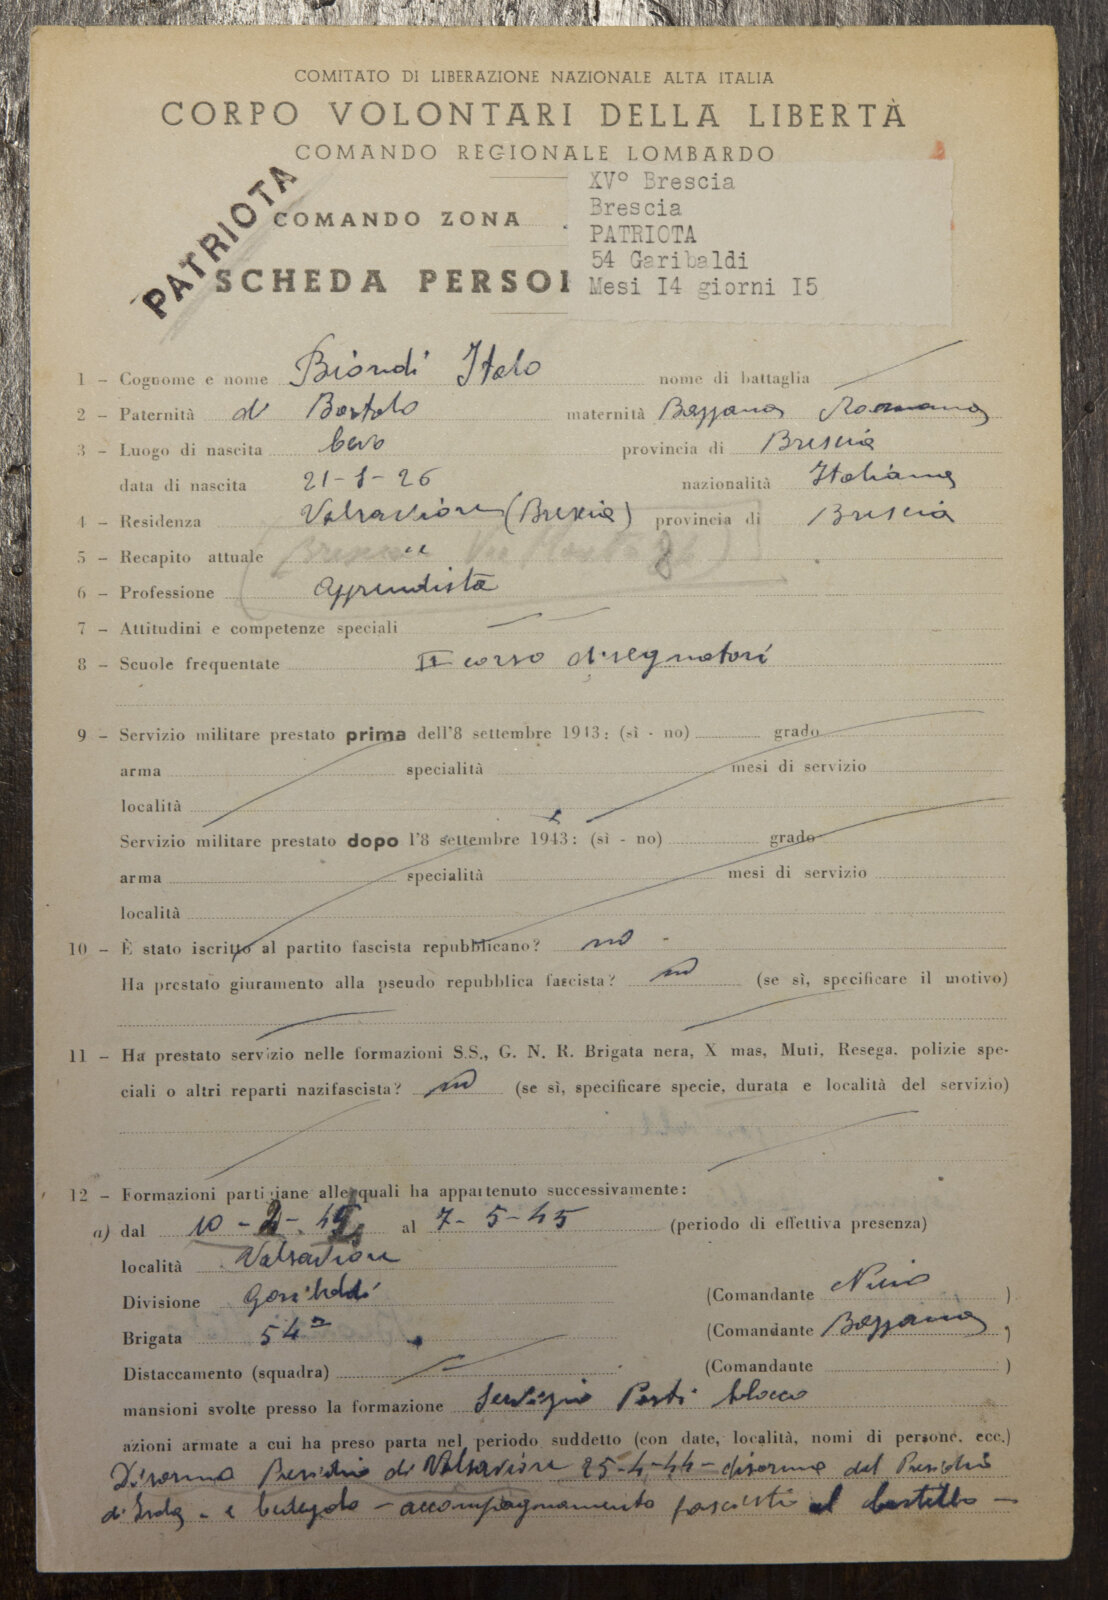 COMITATO DI LIBERAZIONE NAZIONALE ALTA ITALIA
CORPO VOLONTARI DELLA LIBERTÀ
COMANDO REGIONALE LOMBARDO
PATRIOTA
COMANDO ZONA
SCHEDA PERSO
XV° Brescia
Brescia
PATRIOTA
54 Garibaldi
Mesi I4 giorni I5
1 - Cognome e nome Biondi Italo nome di battaglia
2 - Paternità di Bortolo maternità Bazzana Romana
3 - Luogo di nascita Cevo provincia di Brescia
data di nascita 21-8-26 nazionalità Italiana
4 - Residenza Valsaviore (Brescia) provincia di Brescia
5 - Recapito attuale " (Brescia Via
6 - Professione apprendista
7 - Attitudini e competenze speciali
8 - Scuole frequentate II corso disegnatori
9 - Servizio militare prestato prima dell'8 settembre 1943: (sì - no) grado
arma specialità mesi di servizio
località
Servizio militare prestato dopo l'8 settembre 1943: (sì - no) grado
arma specialità mesi di servizio
località
10 - È stato iscritto al partito fascista repubblicano? no -
Ha prestato giuramento alla pseudo repubblica fascista? no (se sì, specificare il motivo)
11 - Ha prestato servizio nelle formazioni S.S., G. N. R. Brigata nera, X mas, Muti, Resega, polizie spe-
ciali o altri reparti nazifascista? no (se sì, specificare specie, durata e località del servizio)
12 - Formazioni partigiane alle quali ha appartenuto successivamente:
a) dal 10-2-44 al 7-5-45 (periodo di effettiva presenza)
località Valsaviore
Divisione Garibaldi (Comandante Nino )
Brigata 54ª (Comandante Bazzana )
Distaccamento (squadra) (Comandante )
mansioni svolte presso la formazione Servizio Posti blocco
azioni armate a cui ha preso parte nel periodo suddetto (con date, località, nomi di persone, ecc.)
Disarmo Presidio di Valsaviore 25-4-44 - disarmo del Presidio
di Isola - e Cedegolo - accompagnamento fascisti al Castello -